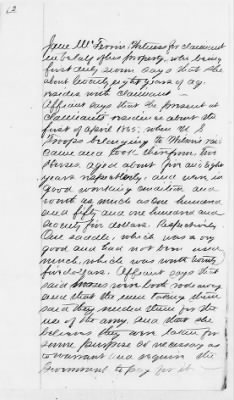 Jane McFerrin Witness for claimant
in behalf of his property, who being
first duly sworn says that she
about Seventy eight years of age
resides with claimant -
Affiant says that she present at
Claimants residence about the
first of April 1865; when U S
Troops belonging to Wilson's
came and took therefrom, two
Horses, aged about five and Eight
years respectively, and were in
good working condition and
worth as much as One hundred
and fifty and one hundred and
seventy five dollars, Respectively,
One saddle, which was a
good and had not been used
much, which was worth twenty
five dollars. Affiant says that
said horses were both
and that the men taking them
said they needed them for the
use of the army and that she
believes they were taken for
some purpose so necessary as
to warrant and require the
Government to pay for it -